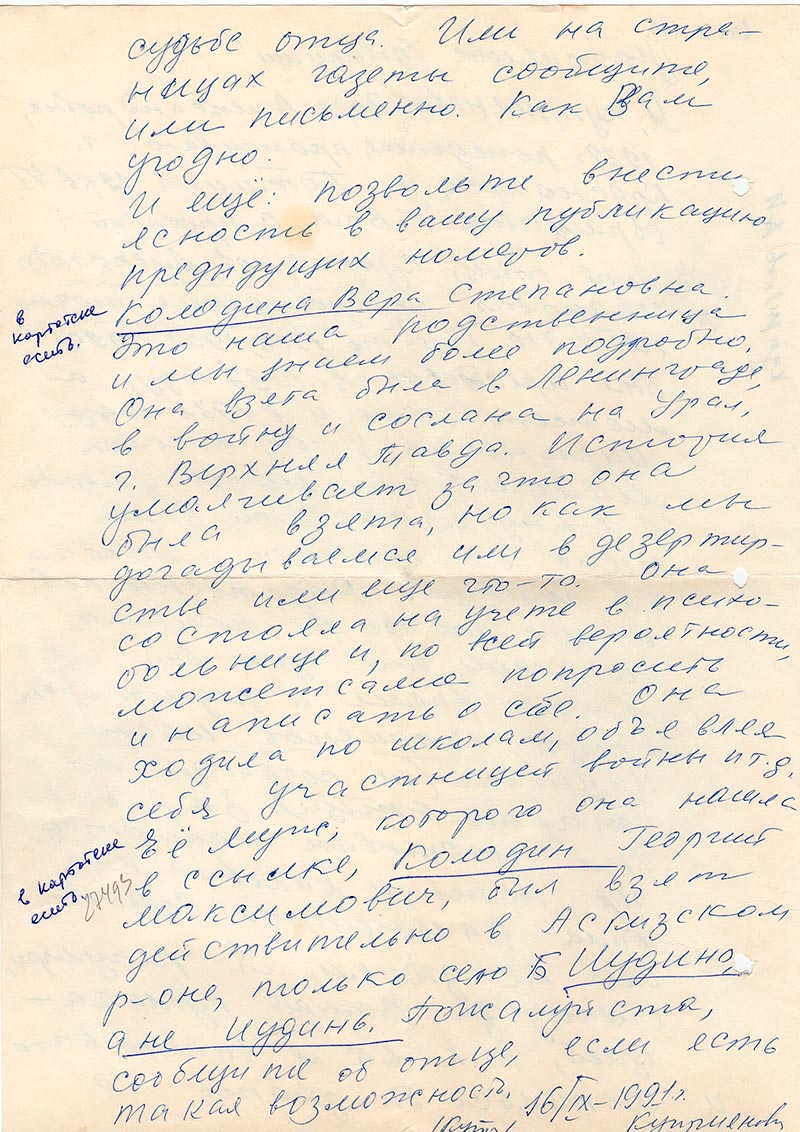 судьбе отца. Или на стра-
ницах газеты сообщите,
или письменно. Как Вам
угодно.
И ещё: позвольте внести
ясность в вашу публикацию
предыдущих номеров.
Колодина Вера Степановна.
в картотеке есть.
Это наша родственница
и мы знаем более подробно.
Она взята была в Ленинграде,
в войну и сослана на Урал,
г. Верхняя Тавда. История
умалчивает за что она
была взята, но как мы
догадываемся или в дезертир-
стве или еще что-то. Она
состояла на учете в психо-
больнице и, по всей вероятности,
может сама попросить
и написать о себе. Она
ходила по школам, объявляя
себя участницей войны и т.д.
Её муж, которого она нашла
в ссылке, Колодин Георгий
в картотеке есть. 27493
Максимович, был взят
действительно в Аскизском
р-оне, только село Б Иудино,
а не Иудинь. Пожалуйста,
сообщите об отце, если есть
такая возможность.
16/IX-1991г.